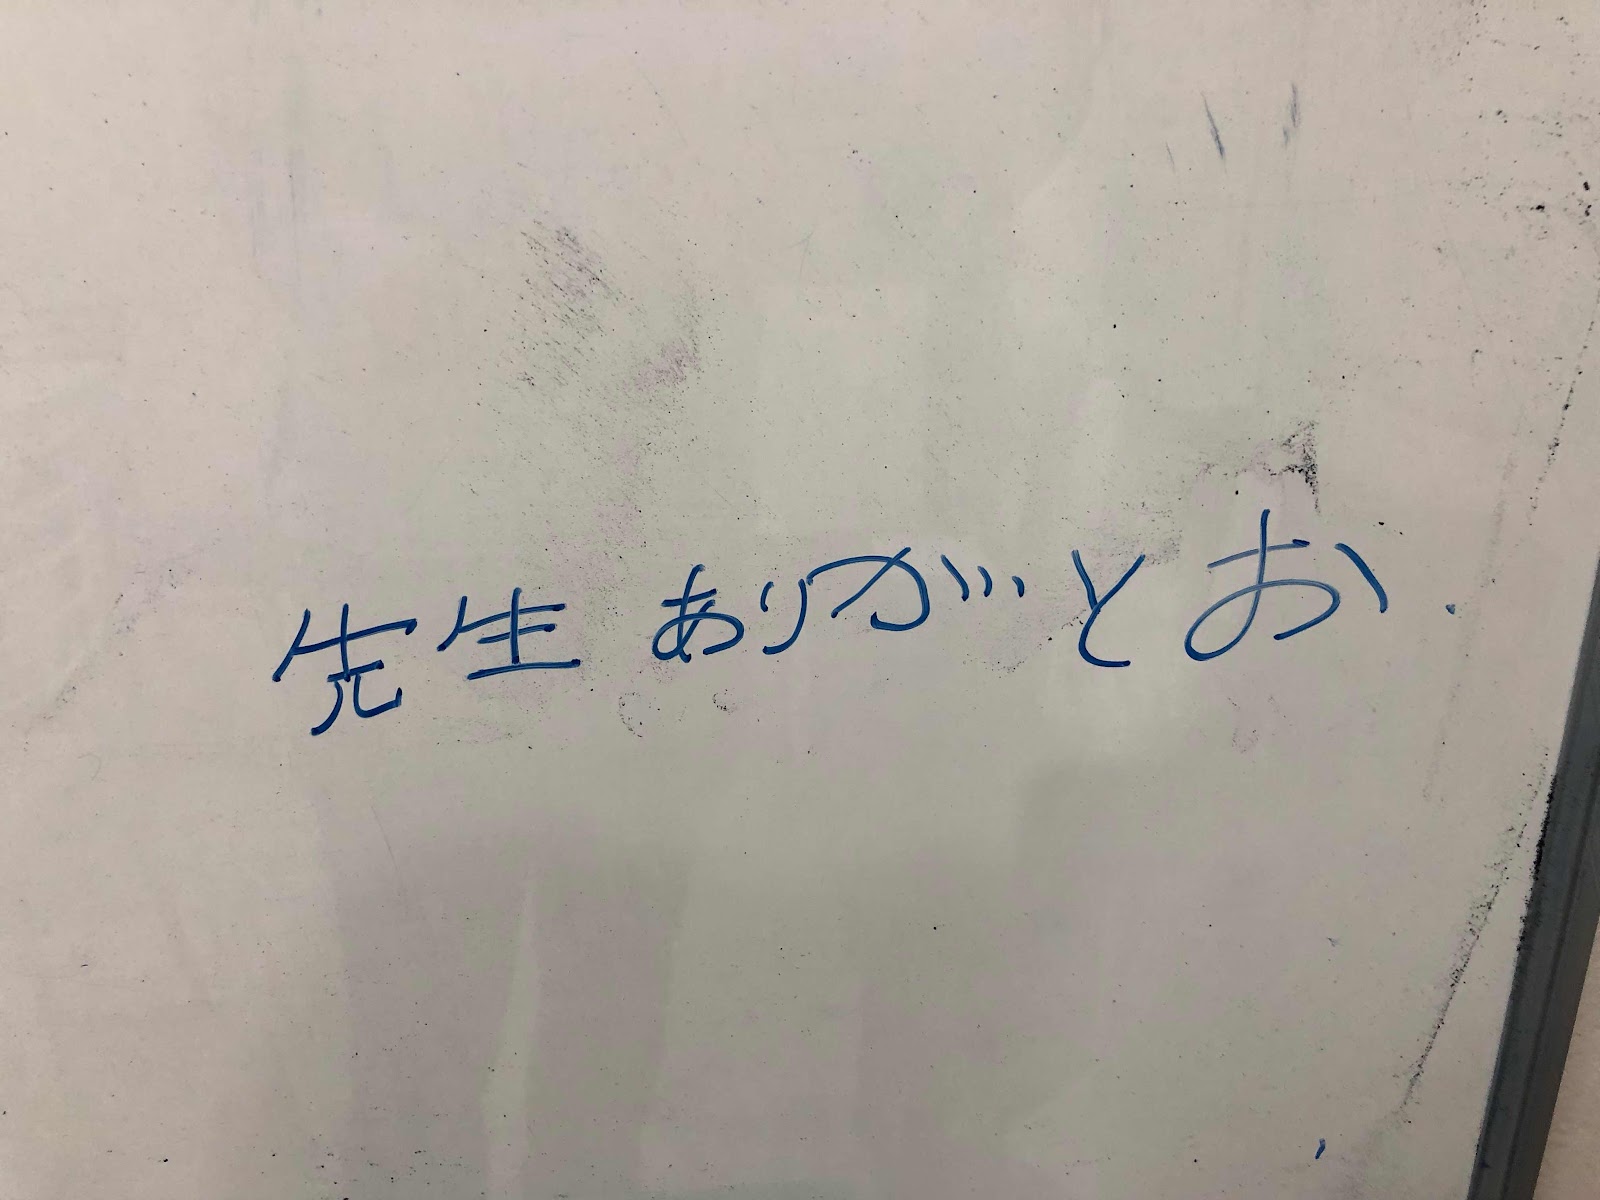 先生ありがとお.